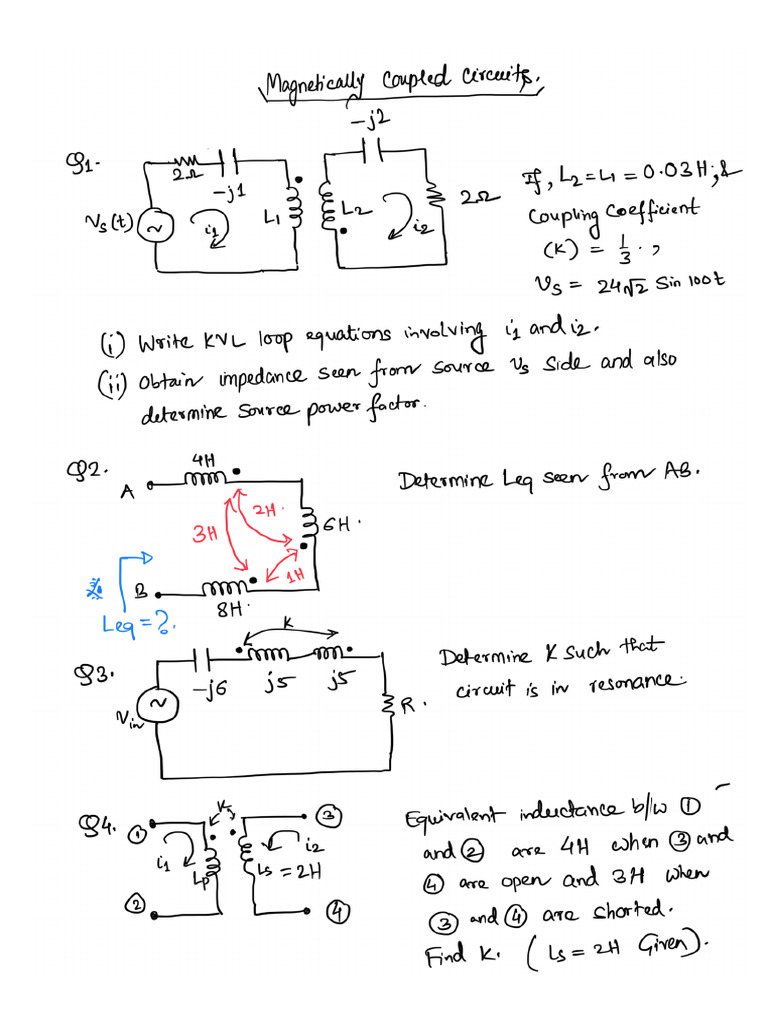 Magnetically Coupled Circuits.
Q1.
2Ω
-j1
Vs(t)
i1
L1
-j2
L2
i2
2Ω
If, L2 = L1 = 0.03H, &
Coupling Coefficient
(K) = 1/3 . ,
Vs = 24√2 Sin 100t
(i) Write KVL loop equations involving i1 and i2.
(ii) Obtain impedance seen from source Vs side and also
determine source power factor.
Q2.
4H
A
2H.
3H
6H.
1H
B
8H.
Leq = ?.
Determine Leq seen from AB.
Q3.
K
-j6
j5
j5
Vin
R.
Determine K such that
circuit is in resonance.
Q4.
K
1
3
i1
i2
Lp
Ls = 2H
2
4
Equivalent inductance b/w ①
and ② are 4H when ③ and
④ are open and 3H when
③ and ④ are shorted.
Find K. (Ls = 2H Given).